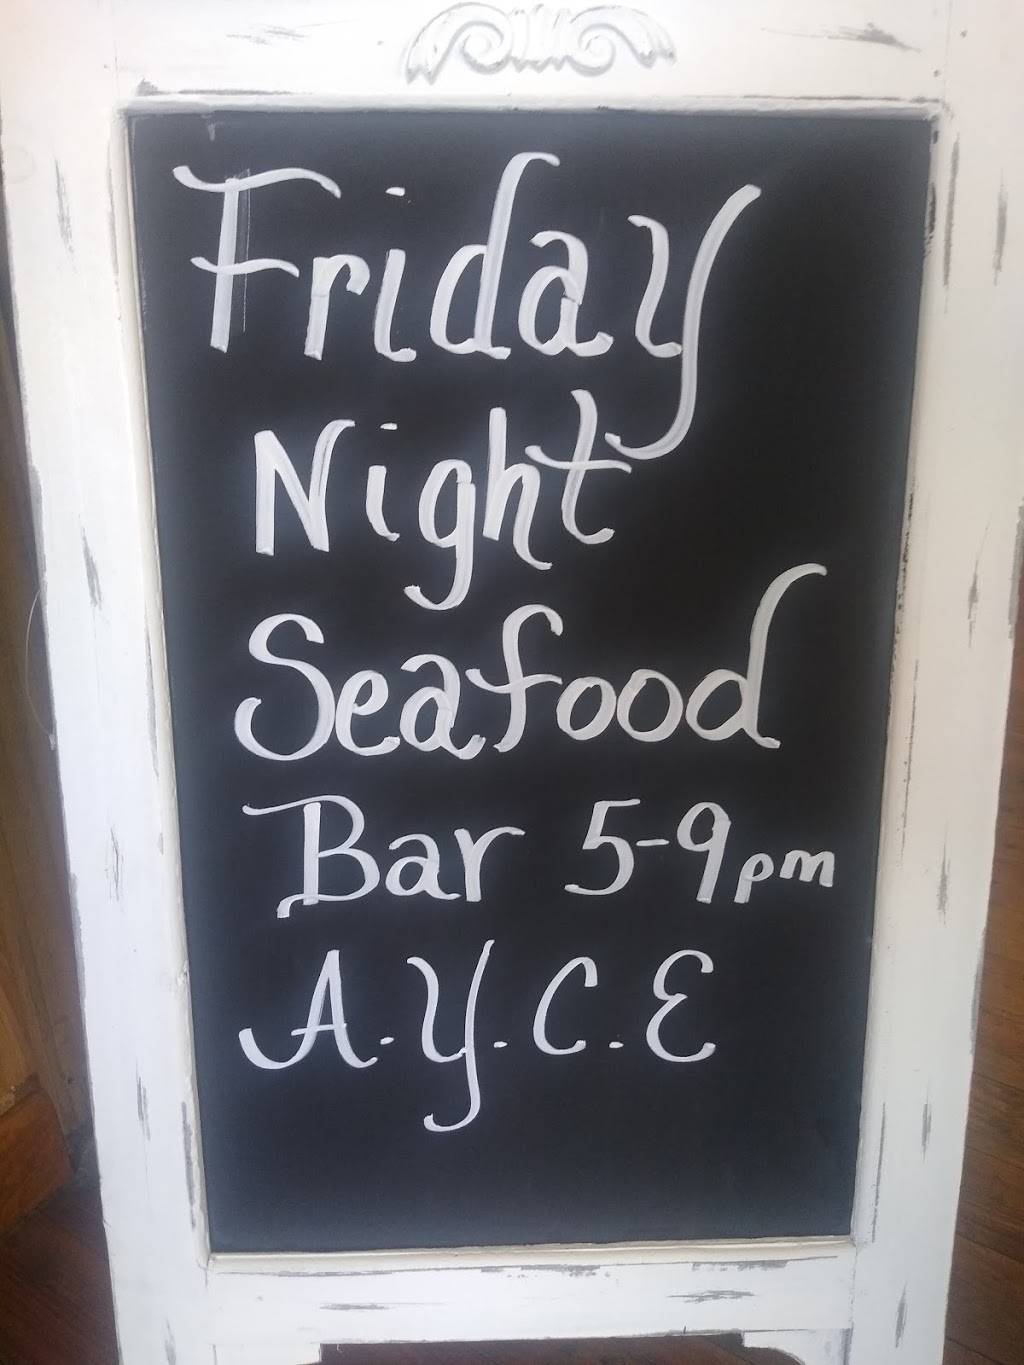 Friday
Night
Seafood
Bar 5-9pm
A.Y.C.E